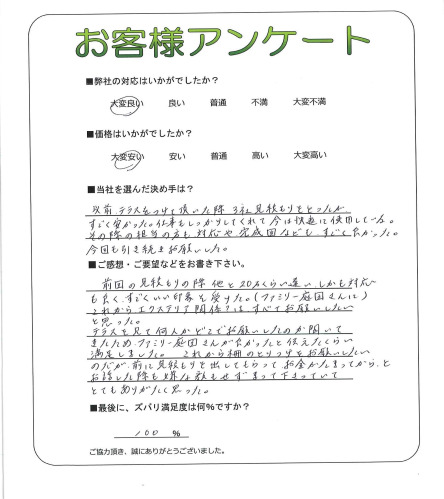 お客様アンケート
■弊社の対応はいかがでしたか？
大変良い 良い 普通 不満 大変不満
■価格はいかがでしたか？
大変安い 安い 普通 高い 大変高い
■当社を選んだ決め手は？
以前テラスをつけて頂いた際3社見積もりをとったが
すごく安かった。仕事もしっかりしてくれて今は快適に使用している。
その際の担当の方も対応や完成図などもすごく良かった。
今回も引き続きお願いした。
■ご感想・ご要望などをお書き下さい。
前回の見積もりの際 他と20万くらい違い しかも対応
も良く、すごくいい印象を受けた。(ファミリー庭園さんに)
これからエクステリア関係では、すべてお願いしたい
と思った。
テラスを見て何人かどこでお願いしたのか聞いて
きたため、ファミリー庭園さんが良かったと伝えたくらい
満足しました。これから柵のとりつけをお願いしたい
のだが、前に見積もりを出してもらって お金がたまってから、と
お話した際も嫌な顔もせずまって下さっていて
とてもありがたく思った。
■最後に、ズバリ満足度は何%ですか？
100 %
ご協力頂き、誠にありがとうございました。